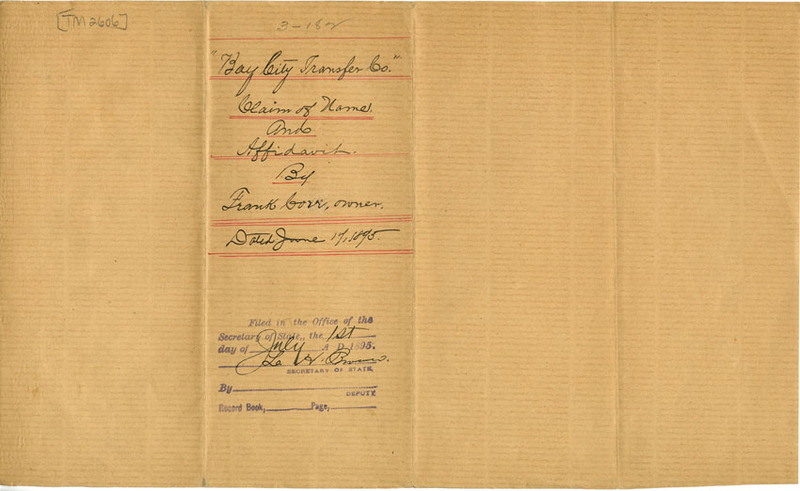 [TM 2606]
3-182
"Bay City Transfer Co."
Claim of Name,
And
Affidavit.
By
Frank Corr, owner.
Dated June 17, 1895.
Filed in the Office of the
Secretary of State, the 1st
day of July A D 1895.
L. H. Brown.
SECRETARY OF STATE.
By
DEPUTY
Record Book, Page,